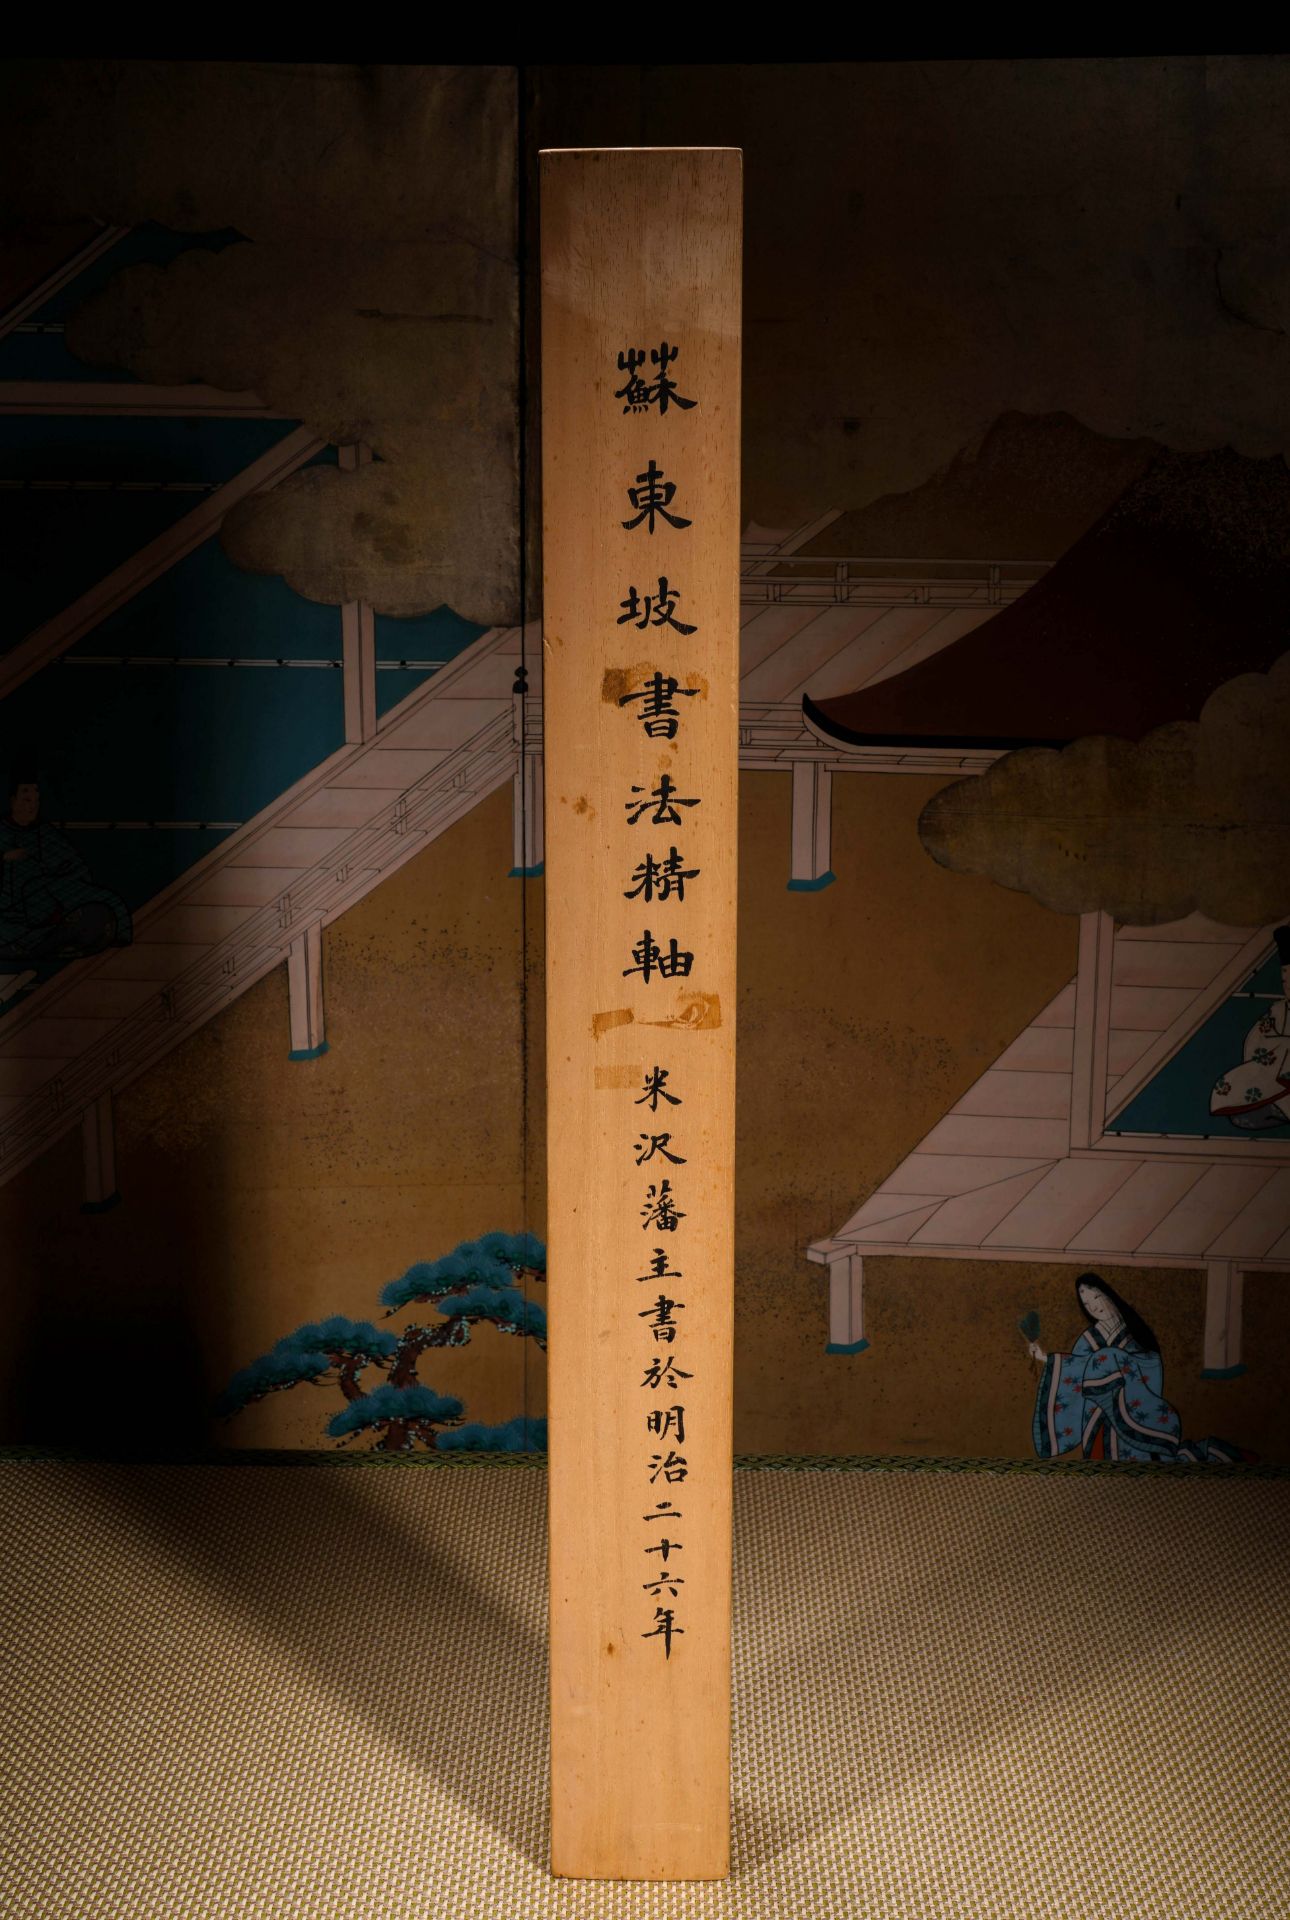 蘇東坡書法精軸
米沢藩主書於明治二十六年